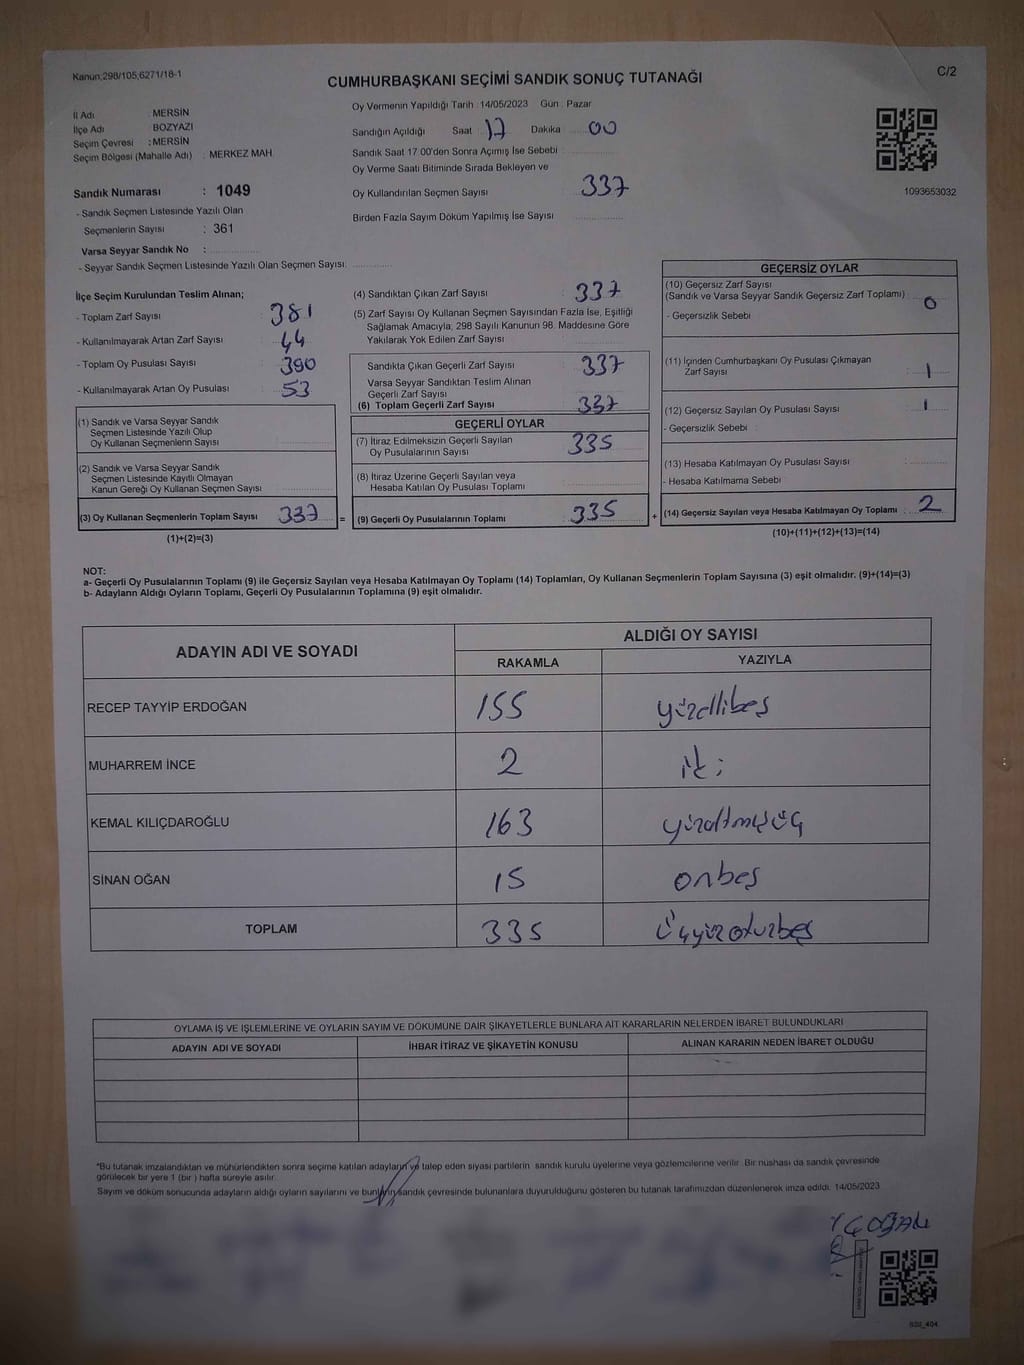 Kanun;298/105,6271/18-1
C/2
CUMHURBAŞKANI SEÇİMİ SANDIK SONUÇ TUTANAĞI
İl Adı : MERSİN
İlçe Adı : BOZYAZI
Seçim Çevresi : MERSİN
Seçim Bölgesi (Mahalle Adı) : MERKEZ MAH.
Sandık Numarası : 1049
- Sandık Seçmen Listesinde Yazılı Olan
Seçmenlerin Sayısı : 361
Varsa Seyyar Sandık No :
- Seyyar Sandık Seçmen Listesinde Yazılı Olan Seçmen Sayısı:
Oy Vermenin Yapıldığı Tarih : 14/05/2023 Gün : Pazar
Sandığın Açıldığı Saat : 17 Dakika 00
Sandık Saat 17:00'den Sonra Açımış İse Sebebi :
Oy Verme Saati Bitiminde Sırada Bekleyen ve
Oy Kullandırılan Seçmen Sayısı : 337
Birden Fazla Sayım Döküm Yapılmış İse Sayısı
1093653032
İlçe Seçim Kurulundan Teslim Alınan;
- Toplam Zarf Sayısı : 381
- Kullanılmayarak Artan Zarf Sayısı : 44
- Toplam Oy Pusulası Sayısı : 390
- Kullanılmayarak Artan Oy Pusulası : 53
(1) Sandık ve Varsa Seyyar Sandık
Seçmen Listesinde Yazılı Olup
Oy Kullanan Seçmenlerin Sayısı
(2) Sandık ve Varsa Seyyar Sandık
Seçmen Listesinde Kayıtlı Olmayan
Kanun Gereği Oy Kullanan Seçmen Sayısı
(3) Oy Kullanan Seçmenlerin Toplam Sayısı 337
(1)+(2)=(3)
=
(4) Sandıktan Çıkan Zarf Sayısı : 337
(5) Zarf Sayısı Oy Kullanan Seçmen Sayısından Fazla İse, Eşitliği
Sağlamak Amacıyla, 298 Sayılı Kanunun 98. Maddesine Göre
Yakılarak Yok Edilen Zarf Sayısı :
Sandıkta Çıkan Geçerli Zarf Sayısı : 337
Varsa Seyyar Sandıktan Teslim Alınan
Geçerli Zarf Sayısı
(6) Toplam Geçerli Zarf Sayısı : 337
GEÇERLİ OYLAR
(7) İtiraz Edilmeksizin Geçerli Sayılan
Oy Pusulalarının Sayısı : 335
(8) İtiraz Üzerine Geçerli Sayılan veya
Hesaba Katılan Oy Pusulası Toplamı
(9) Geçerli Oy Pusulalarının Toplamı : 335
+
GEÇERSİZ OYLAR
(10) Geçersiz Zarf Sayısı
(Sandık ve Varsa Seyyar Sandık Geçersiz Zarf Toplamı) : 0
- Geçersizlik Sebebi :
(11) İçinden Cumhurbaşkanı Oy Pusulası Çıkmayan
Zarf Sayısı : 1
(12) Geçersiz Sayılan Oy Pusulası Sayısı : 1
- Geçersizlik Sebebi :
(13) Hesaba Katılmayan Oy Pusulası Sayısı :
- Hesaba Katılmama Sebebi :
(14) Geçersiz Sayılan veya Hesaba Katılmayan Oy Toplamı : 2
(10)+(11)+(12)+(13)=(14)
NOT:
a- Geçerli Oy Pusulalarının Toplamı (9) ile Geçersiz Sayılan veya Hesaba Katılmayan Oy Toplamı (14) Toplamları, Oy Kullanan Seçmenlerin Toplam Sayısına (3) eşit olmalıdır. (9)+(14)=(3)
b- Adayların Aldığı Oyların Toplamı, Geçerli Oy Pusulalarının Toplamına (9) eşit olmalıdır.
ADAYIN ADI VE SOYADI
ALDIĞI OY SAYISI
RAKAMLA YAZIYLA
RECEP TAYYİP ERDOĞAN 155 yüzellibeş
MUHARREM İNCE 2 iki
KEMAL KILIÇDAROĞLU 163 yüzaltmışüç
SİNAN OĞAN 15 onbeş
TOPLAM 335 Üçyüzotuzbeş
OYLAMA İŞ VE İŞLEMLERİNE VE OYLARIN SAYIM VE DÖKÜMÜNE DAİR ŞİKAYETLERLE BUNLARA AİT KARARLARIN NELERDEN İBARET BULUNDUKLARI
ADAYIN ADI VE SOYADI İHBAR İTİRAZ VE ŞİKAYETİN KONUSU ALINAN KARARIN NEDEN İBARET OLDUĞU
*Bu tutanak imzalandıktan ve mühürlendikten sonra seçime katılan adayların ve talep eden siyasi partilerin sandık kurulu üyelerine veya gözlemcilerine verilir. Bir nüshası da sandık çevresinde
görülecek bir yere 1 (bir ) hafta süreyle asılır.
Sayım ve döküm sonucunda adayların aldığı oyların sayılarını ve bunların sandık çevresinde bulunanlara duyurulduğunu gösteren bu tutanak tarafımızdan düzenlenerek imza edildi. 14/05/2023